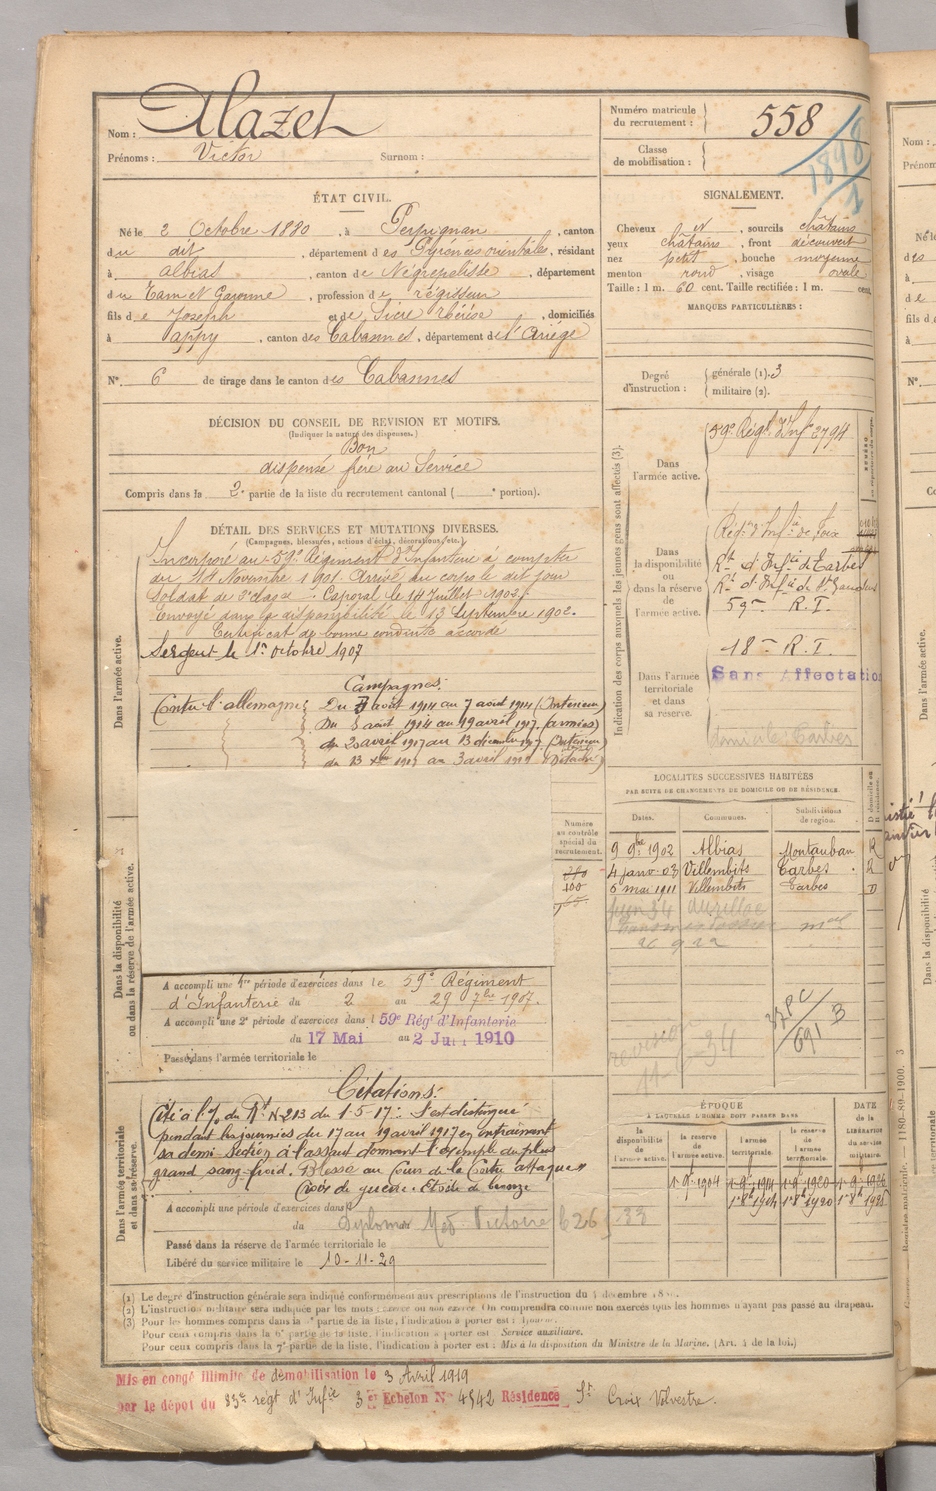 Nom : Alazet
Prénoms : Victor Surnom :
Numéro matricule du recrutement : 558
Classe de mobilisation :
1898
ÉTAT CIVIL.
Né le 2 Octobre 1880, à Perpignan, canton
du dit, département des Pyrénées orientales, résidant
à albias, canton de Négrepelisse, département
du Tarn et Garonne, profession de régisseur
fils de Joseph et de Sicre thérèse, domiciliés
à appy, canton des Cabannes, département de l'Ariège
N° 6 de tirage dans le canton des Cabannes
SIGNALEMENT.
Cheveux et, sourcils châtains
yeux châtains, front découvert
nez petit, bouche moyenne
menton rond, visage ovale
Taille : 1 m. 60 cent. Taille rectifiée : 1 m. cent.
MARQUES PARTICULIÈRES :
Degré d'instruction : générale (1). 3
militaire (2).
DÉCISION DU CONSEIL DE REVISION ET MOTIFS.
(Indiquer la nature des dispenses.)
Bon
dispensé frère au Service
Compris dans la 2e partie de la liste du recrutement cantonal ( e portion).
DÉTAIL DES SERVICES ET MUTATIONS DIVERSES.
(Campagnes, blessures, actions d'éclat, décorations, etc.)
Dans l'armée active.
Incorporé au 59e Régiment d'Infanterie à compter
du 14 Novembre 1901. Arrivé au corps le dit jour
Soldat de 2e classe. Caporal le 14 Juillet 1902.
Envoyé dans la disponibilité le 13 Septembre 1902.
Certificat de bonne conduite accordé
Sergent le 1er octobre 1907
Campagnes:
Contre l'allemagne Du août 1914 au 7 août 1914 (Intérieur)
Du 8 août 1914 au 19 avril 1917. (armées)
du 20 avril 1917 au 13 décembre 1917. (Intérieur)
du 13 Xbre 1917 au 3 avril 1919 (Détaché)
Indication des corps auxquels les jeunes gens sont affectés (3).
Dans l'armée active. 59e Régt d'Infie 2794
Dans la disponibilité ou dans la réserve de l'armée active.
Régt d'Infie de Foix
Rt d'Infie de Tarbes
Rt d'Infie de St Gaudens
59me R. I.
18me R. I.
Dans l'armée territoriale et dans sa réserve.
Sans Affectation
domicile Tarbes
LOCALITÉS SUCCESSIVES HABITÉES
PAR SUITE DE CHANGEMENTS DE DOMICILE OU DE RÉSIDENCE.
Dates. Communes. Subdivisions de région. D domicile ou R résidence.
9 9bre 1902 Albias Montauban R
4 janv. 03 Villembits Tarbes R
6 mai 1911 Villembits Tarbes D
Juin 34 Aurillac
Numéro au contrôle spécial du recrutement.
100
Dans la disponibilité ou dans la réserve de l'armée active.
A accompli une 1re période d'exercices dans le 59e Régiment
d'Infanterie du 2 au 29 7bre 1907.
A accompli une 2e période d'exercices dans l 59e Régt d'Infanterie
du 17 Mai au 2 Juin 1910
Passé dans l'armée territoriale le
revision
11-6-34
691 B
Citations:
Dans l'armée territoriale et dans sa réserve.
Cité à l'O. du Rt N° 213 du 1-5-17: S'est distingué
pendant les journées du 17 au 19 avril 1917 en entrainant
sa demi-section à l'assaut donnant l'exemple du plus
grand sang-froid. Blessé au cours de la Contre attaque"
Croix de guerre. Etoile de bronze
A accompli une période d'exercices dans l
du Diplome Méd. Victoire 626 33
Passé dans la réserve de l'armée territoriale le
Libéré du service militaire le 10-11-29
ÉPOQUE
À LAQUELLE L'HOMME DOIT PASSER DANS
la disponibilité de l'armée active. la réserve de l'armée active. l'armée territoriale. la réserve de l'armée territoriale. DATE de la LIBÉRATION du service militaire.
1er 9bre 1904 1er 9bre 1914 1er 9bre 1920 1er 9bre 1926
1er 8bre 1914 1er 8bre 1920 1er 8bre 1926
(1) Le degré d'instruction générale sera indiqué conformément aux prescriptions de l'instruction du 4 décembre
(2) L'instruction militaire sera indiquée par les mots exercé ou non exercé. On comprendra comme non exercés tous les hommes n'ayant pas passé au drapeau.
(3) Pour les hommes compris dans la partie de la liste, l'indication à porter est :
Pour ceux compris dans la 6e partie de la liste, l'indication à porter est : Service auxiliaire.
Pour ceux compris dans la 7e partie de la liste, l'indication à porter est : Mis à la disposition du Ministre de la Marine. (Art. 4 de la loi.)
Mis en congé illimité de démobilisation le 3 Avril 1919
par le dépôt du 83e régt d'Infie 3e Echelon N° 4542 Résidence St Croix Volvestre.